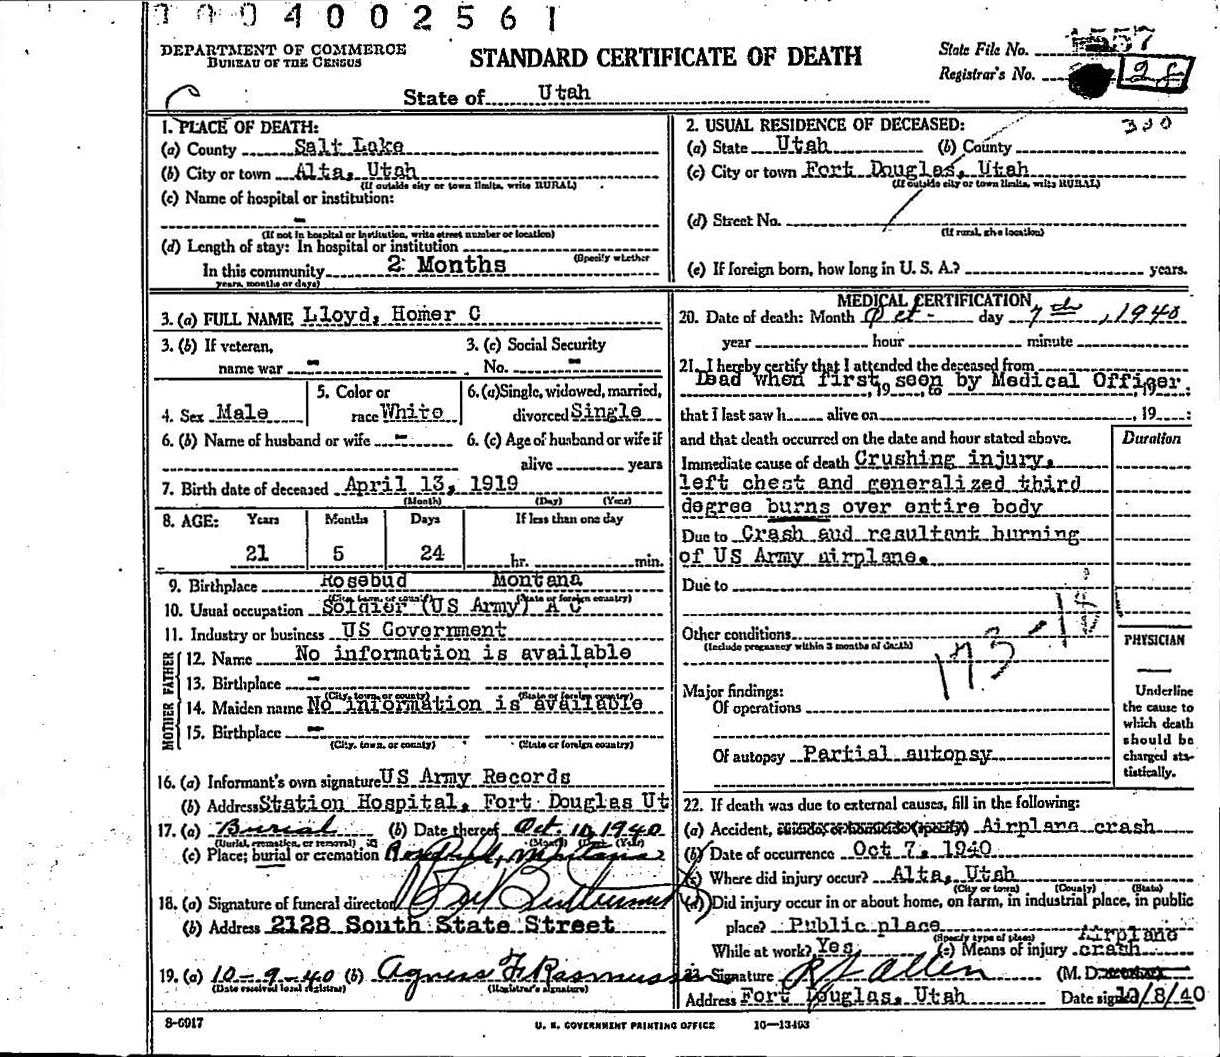 4002561
DEPARTMENT OF COMMERCE
BUREAU OF THE CENSUS
STANDARD CERTIFICATE OF DEATH
State File No. 1557
Registrar's No. 28
State of Utah
1. PLACE OF DEATH:
(a) County Salt Lake
(b) City or town Alta, Utah
(If outside city or town limits, write RURAL)
(c) Name of hospital or institution:
-
(If not in hospital or institution, write street number or location)
(d) Length of stay: In hospital or institution
(Specify whether
In this community 2 Months
years, months or days)
2. USUAL RESIDENCE OF DECEASED: 300
(a) State Utah (b) County
(c) City or town Fort Douglas, Utah
(If outside city or town limits, write RURAL)
(d) Street No.
(If rural, give location)
(e) If foreign born, how long in U. S. A.? years.
3. (a) FULL NAME Lloyd, Homer C
3. (b) If veteran, name war -
3. (c) Social Security No. -
4. Sex Male
5. Color or race White
6. (a) Single, widowed, married, divorced Single
6. (b) Name of husband or wife -
6. (c) Age of husband or wife if alive years
7. Birth date of deceased April 13, 1919
(Month) (Day) (Year)
8. AGE: Years Months Days If less than one day
21 5 24 hr. min.
9. Birthplace Rosebud Montana
(City, town, or county) (State or foreign country)
10. Usual occupation Soldier (US Army) A C
11. Industry or business US Government
FATHER
12. Name No information is available
13. Birthplace -
(City, town, or county) (State or foreign country)
MOTHER
14. Maiden name No information is available
15. Birthplace -
(City, town, or county) (State or foreign country)
16. (a) Informant's own signature US Army Records
(b) Address Station Hospital, Fort Douglas Ut
17. (a) Burial (b) Date thereof Oct. 10, 1940
(Burial, cremation, or removal) (Month) (Day) (Year)
(c) Place; burial or cremation Rosebud, Montana
18. (a) Signature of funeral director
(b) Address 2128 South State Street
19. (a) 10-9-40 (b) Agness F Rasmussen
(Date received local registrar) (Registrar's signature)
MEDICAL CERTIFICATION
20. Date of death: Month Oct- day 7th, 1940
year hour minute
21. I hereby certify that I attended the deceased from
Dead when first seen by Medical Officer
, 19 , to , 19 :
that I last saw h alive on , 19 :
and that death occurred on the date and hour stated above.
Duration
Immediate cause of death Crushing injury,
left chest and generalized third
degree burns over entire body
Due to Crash and resultant burning
of US Army airplane.
Due to
Other conditions
(Include pregnancy within 3 months of death)
173-18
Major findings:
Of operations
Of autopsy Partial autopsy
PHYSICIAN
Underline
the cause to
which death
should be
charged sta-
tistically.
22. If death was due to external causes, fill in the following:
(a) Accident, Airplane crash
(b) Date of occurrence Oct 7, 1940
(c) Where did injury occur? Alta, Utah
(City or town) (County) (State)
(d) Did injury occur in or about home, on farm, in industrial place, in public
place? Public place
(Specify type of place)
While at work? Yes (e) Means of injury Airplane crash
23. Signature R W Allen (M. D.
Address Fort Douglas, Utah Date signed 10/8/40
8-6917
U. S. GOVERNMENT PRINTING OFFICE 16-13493